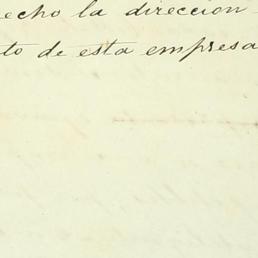 echo la direccion
to de esta empresa